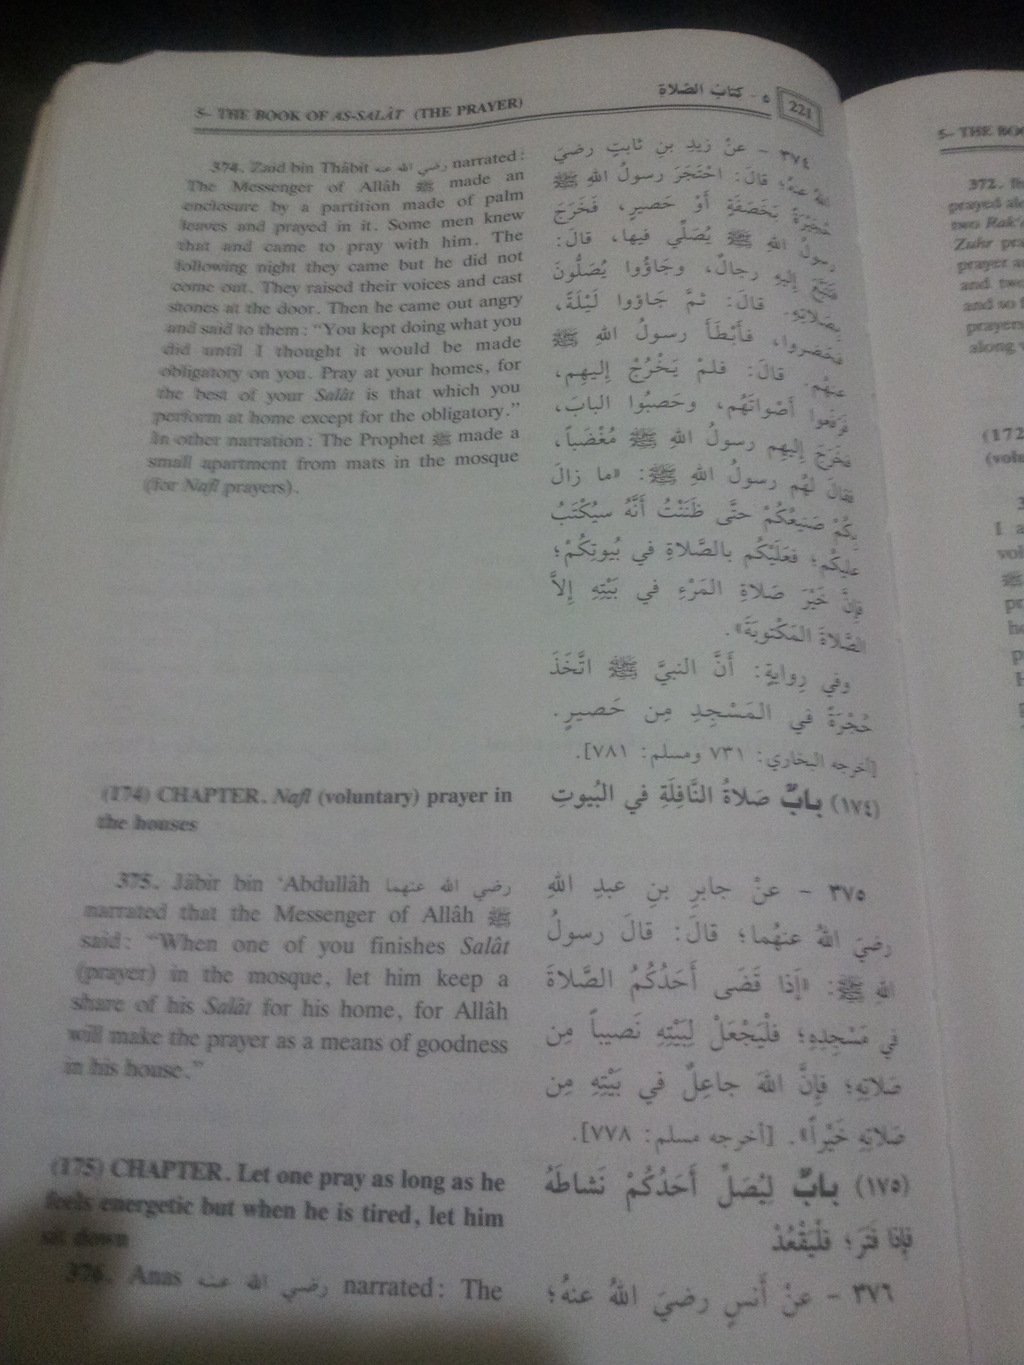 5– THE BOOK OF AS-SALÂT (THE PRAYER)
٥ - كتابُ الصَّلاةِ
221
374. Zaid bin Thâbit رضي الله عنه narrated:
The Messenger of Allâh ﷺ made an
enclosure by a partition made of palm
leaves and prayed in it. Some men knew
that and came to pray with him. The
following night they came but he did not
come out. They raised their voices and cast
stones at the door. Then he came out angry
and said to them: “You kept doing what you
did until I thought it would be made
obligatory on you. Pray at your homes, for
the best of your Salât is that which you
perform at home except for the obligatory.”
In other narration: The Prophet ﷺ made a
small apartment from mats in the mosque
(for Nafl prayers).
٣٧٤ - عنْ زيدِ بنِ ثابتٍ رضيَ
اللهُ عنهُ؛ قالَ: احْتَجَرَ رسولُ اللهِ ﷺ
حُجَيْرَةً بخَصَفَةٍ أَوْ حَصيرٍ، فَخَرَجَ
رسولُ اللهِ ﷺ يُصَلِّي فيها، قالَ:
فتَتَبَّعَ إليهِ رجالٌ، وجَاؤُوا يُصَلُّونَ
بصَلاتِهِ. قالَ: ثمَّ جَاؤوا لَيْلَةً،
فحَضَروا، فأَبْطَأَ رسولُ اللهِ ﷺ
عنهُم. قالَ: فلمْ يَخْرُجْ إليهِم،
فرَفَعوا أَصْواتَهُم، وحَصبُوا البابَ،
فخَرَجَ إليهِم رسولُ اللهِ ﷺ مُغْضَباً،
فقالَ لهُم رسولُ اللهِ ﷺ: «ما زالَ
بِكُمْ صَنيعُكُمْ حتَّى ظَنَنْتُ أَنَّهُ سيُكْتَبُ
عليكُم؛ فعَلَيْكُم بالصَّلاةِ في بُيوتِكُمْ؛
فإِنَّ خَيْرَ صَلاةِ المَرْءِ في بَيْتِهِ إِلاَّ
الصَّلاةَ المَكْتوبَةَ».
وفي رِوايةٍ: أَنَّ النبيَّ ﷺ اتَّخَذَ
حُجْرَةً في المَسْجِدِ مِن حَصيرٍ.
[أخرجه البخاري: ٧٣١ ومسلم: ٧٨١].
(174) CHAPTER. Nafl (voluntary) prayer in
the houses
(١٧٤) بابٌ صَلاةُ النَّافِلَةِ في البُيوتِ
375. Jâbir bin ‘Abdullâh رضي الله عنهما
narrated that the Messenger of Allâh ﷺ
said: “When one of you finishes Salât
(prayer) in the mosque, let him keep a
share of his Salât for his home, for Allâh
will make the prayer as a means of goodness
in his house.”
٣٧٥ - عنْ جابرِ بنِ عبدِ اللهِ
رضيَ اللهُ عنهُما؛ قالَ: قالَ رسولُ
اللهِ ﷺ: «إذا قَضَى أَحَدُكُمُ الصَّلاةَ
في مَسْجِدِهِ؛ فلْيَجْعَلْ لِبَيْتِهِ نَصيباً مِن
صَلاتِهِ؛ فإِنَّ اللهَ جاعِلٌ في بَيْتِهِ مِن
صَلاتِهِ خَيْراً». [أخرجه مسلم: ٧٧٨].
(175) CHAPTER. Let one pray as long as he
feels energetic but when he is tired, let him
sit down
(١٧٥) بابٌ لِيُصَلِّ أَحَدُكُمْ نَشاطَهُ
فإِذا فَتَرَ؛ فلْيَقْعُدْ
376. Anas رضي الله عنه narrated: The
٣٧٦ - عنْ أَنسٍ رضيَ اللهُ عنهُ؛
5– THE BOO
372.
prayed
two Rak‘
Zuhr
prayer
and two
and so
prayers
along
(172
(vol